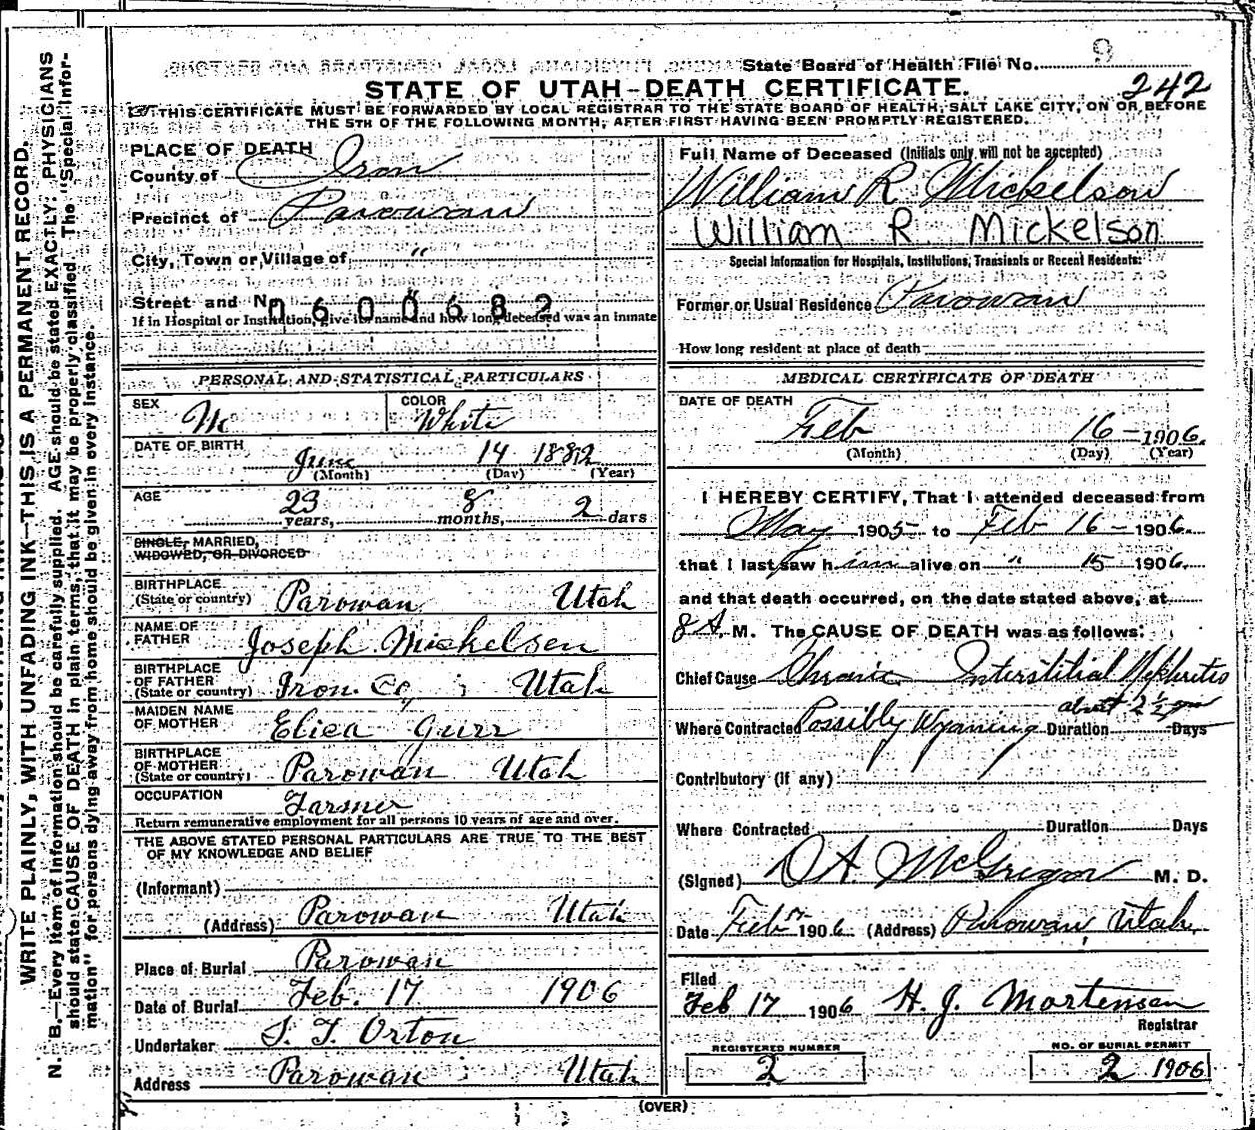 State Board of Health File No. 9
242
STATE OF UTAH-DEATH CERTIFICATE.
THIS CERTIFICATE MUST BE FORWARDED BY LOCAL REGISTRAR TO THE STATE BOARD OF HEALTH, SALT LAKE CITY, ON OR BEFORE
THE 5TH OF THE FOLLOWING MONTH, AFTER FIRST HAVING BEEN PROMPTLY REGISTERED.
WRITE PLAINLY, WITH UNFADING INK—THIS IS A PERMANENT RECORD.
N. B.—Every item of information should be carefully supplied. AGE should be stated EXACTLY. PHYSICIANS
should state CAUSE OF DEATH in plain terms, that it may be properly classified. The "Special Infor-
mation" for persons dying away from home should be given in every instance.
PLACE OF DEATH
County of Iron
Precinct of Parowan
City, Town or Village of "
Street and No. "
0600682
If in Hospital or Institution, give its name and how long deceased was an inmate
PERSONAL AND STATISTICAL PARTICULARS
SEX M COLOR White
DATE OF BIRTH June 14 1882
(Month) (Day) (Year)
AGE 23 years, 8 months, 2 days
SINGLE, MARRIED,
WIDOWED, OR DIVORCED
BIRTHPLACE
(State or country) Parowan Utah
NAME OF
FATHER Joseph Mickelsen
BIRTHPLACE
OF FATHER
(State or country) Iron Co, Utah
MAIDEN NAME
OF MOTHER Eliea Gurr
BIRTHPLACE
OF MOTHER
(State or country) Parowan Utah
OCCUPATION Farmer
Return remunerative employment for all persons 10 years of age and over.
THE ABOVE STATED PERSONAL PARTICULARS ARE TRUE TO THE BEST
OF MY KNOWLEDGE AND BELIEF
(Informant)
(Address) Parowan Utah
Place of Burial Parowan
Date of Burial Feb. 17 1906
Undertaker S. T. Orton
Address Parowan Utah
Full Name of Deceased (Initials only will not be accepted)
William R Mickelson
William R Mickelson
Special Information for Hospitals, Institutions, Transients or Recent Residents:
Former or Usual Residence Parowan
How long resident at place of death
MEDICAL CERTIFICATE OF DEATH
DATE OF DEATH
Feb 16 - 1906.
(Month) (Day) (Year)
I HEREBY CERTIFY, That I attended deceased from
May 1905 to Feb 16 - 1906.
that I last saw him alive on " 15 1906.
and that death occurred, on the date stated above, at
8 A. M. The CAUSE OF DEATH was as follows:
Chief Cause Chronic Interstitial Nephritis
about 2 1/2 yrs
Where Contracted Possibly Wyoming Duration Days
Contributory (if any)
Where Contracted Duration Days
(Signed) D A McGregor M. D.
Date Feb 17 1906 (Address) Parowan, Utah.
Filed
Feb 17 1906 H. J. Mortensen
Registrar
REGISTERED NUMBER
2
NO. OF BURIAL PERMIT
2 1906
(OVER)